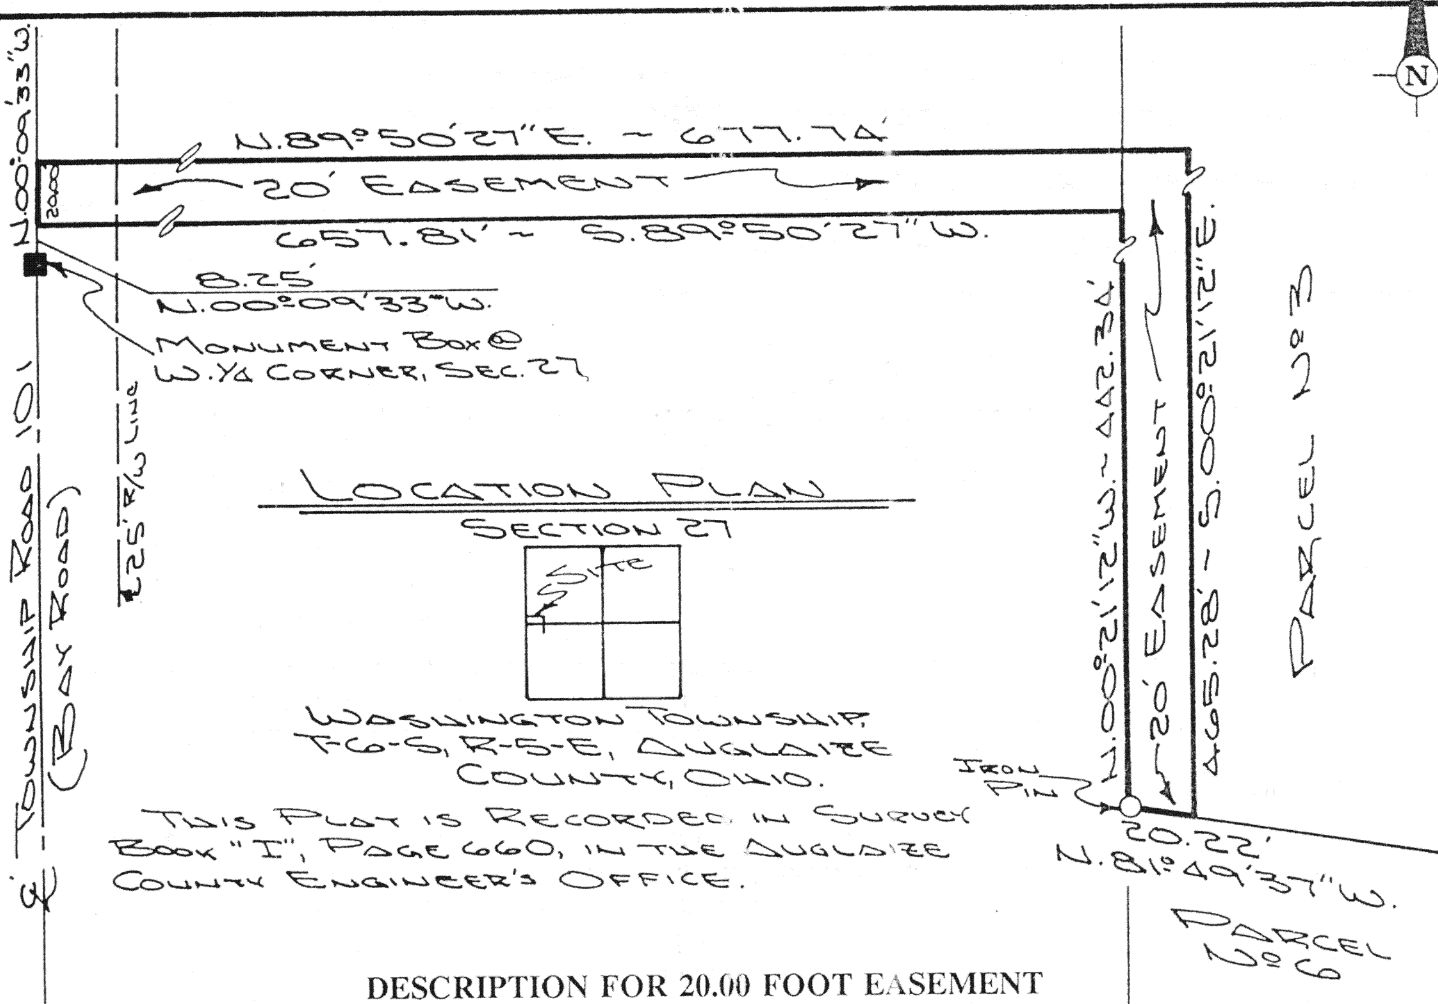 N
N.00°09'33"W.
N.89°50'27"E. ~ 677.74'
20.00
20' EASEMENT
657.81' ~ S.89°50'27"W.
8.25'
N.00°09'33"W.
MONUMENT BOX @
W.1/4 CORNER, SEC. 27
25' R/W LINE
℄ TOWNSHIP ROAD 101
(BAY ROAD)
LOCATION PLAN
SECTION 27
SITE
WASHINGTON TOWNSHIP,
T-6-S, R-5-E, AUGLAIZE
COUNTY, OHIO.
THIS PLAT IS RECORDED IN SURVEY
BOOK "I", PAGE 660, IN THE AUGLAIZE
COUNTY ENGINEER'S OFFICE.
N.00°21'12"W. ~ 442.34'
20' EASEMENT
465.28' ~ S.00°21'12"E.
PARCEL Nº 3
IRON
PIN
20.22'
N.81°49'37"W.
PARCEL
Nº 6
DESCRIPTION FOR 20.00 FOOT EASEMENT